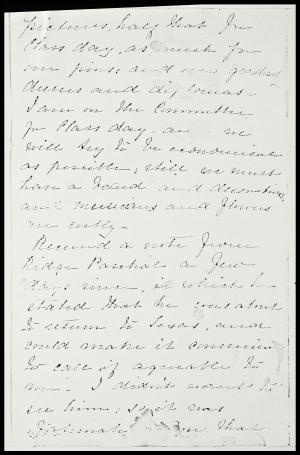 pictures, half that for
Class day, as much for
our pins; and our gradua
dresses and diplomas.
I am on the Committee
for Class day, and we
will try to be economical
as possible; still we must
have a band and decorations,
and musicians and flowers
are costly.
Received a note from
Ridge Paschal a few
days since, in which he
stated that he was about
to return to Texas, and
could make it convenient
to call if agreeable to
me. I didn't want to
see him; so it was
fortunate that